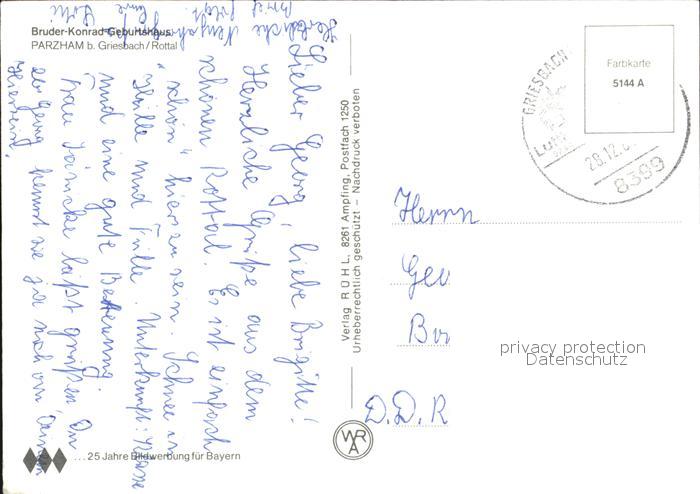 Bruder-Konrad-Geburtshaus
PARZHAM b. Griesbach/Rottal
Lieber Georg, liebe Brigitte!
Herzliche Grüße aus dem
schönen Rottal. Es ist einfach
schön hier zu sein. Schnee in
Hülle und Fülle. Unterkunft: Klasse
und eine gute Betreuung.
Frau läßt grüßen. Du
Georg kennst sie ja noch vom
Herzliche Neujahr
Lotti
Verlag RÜHL, 8261 Ampfing, Postfach 1250
Urheberrechtlich geschützt – Nachdruck verboten
GRIESBACH
28.12.
8399
Farbkarte
5144 A
Herrn
Geo
D.D.R
privacy protection
Datenschutz
WRA
...25 Jahre Bildwerbung für Bayern